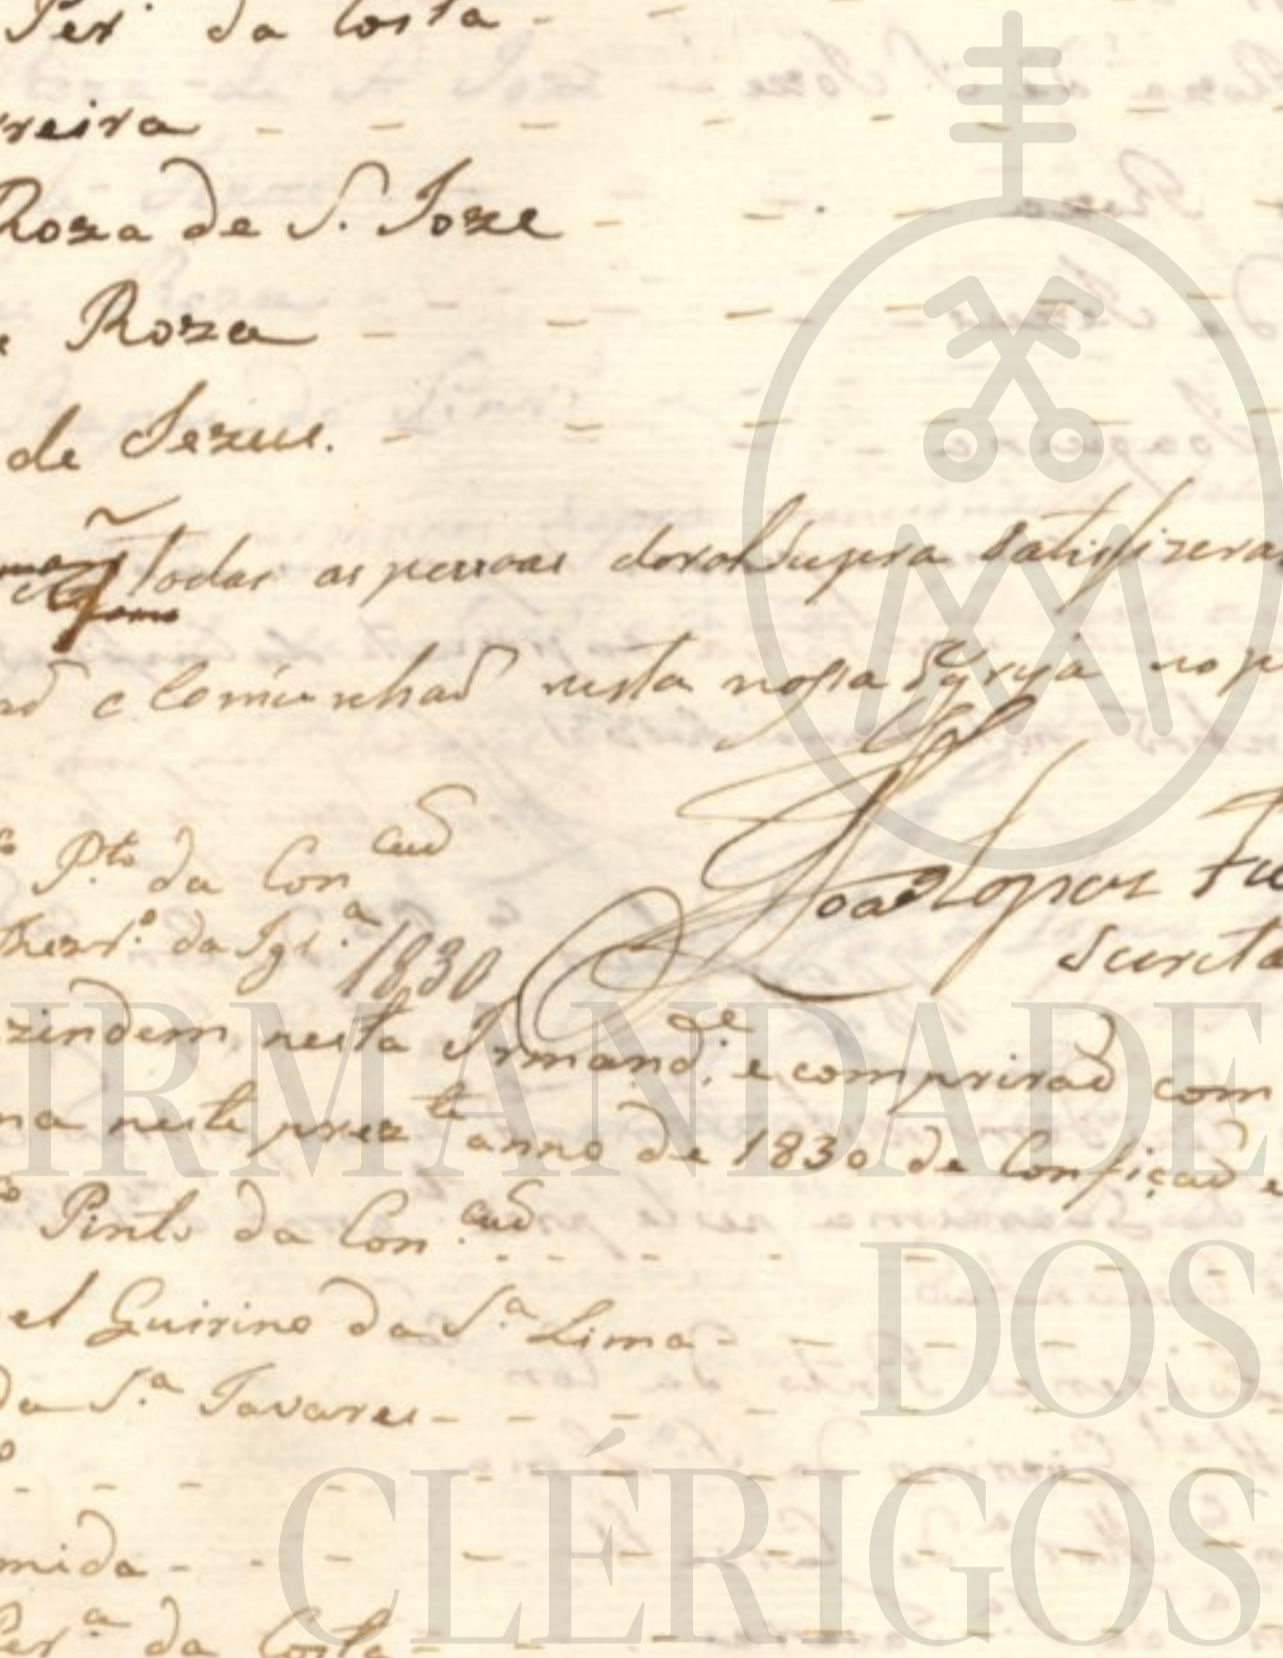 Per.ª da Costa
rreira
Roza de S. Joze
Roza
de Jezus.
todas as pessoas do rol supra satisfizera
e Comunhaõ nesta nossa Igreja no p
P.to da Con.caõ
Thezr.º da Igr.ª 1830
Joaõ Lopes
Secreta
zindem nesta Irmand.de e compriraõ com
ma neste prez.te anno de 1830 de Confiçaõ e
Pinto da Con.caõ
el Guirino da S.ª Lima
da S.ª Tavares
mida
Per.ª da Costa
IRMANDADE
DOS
CLÉRIGOS